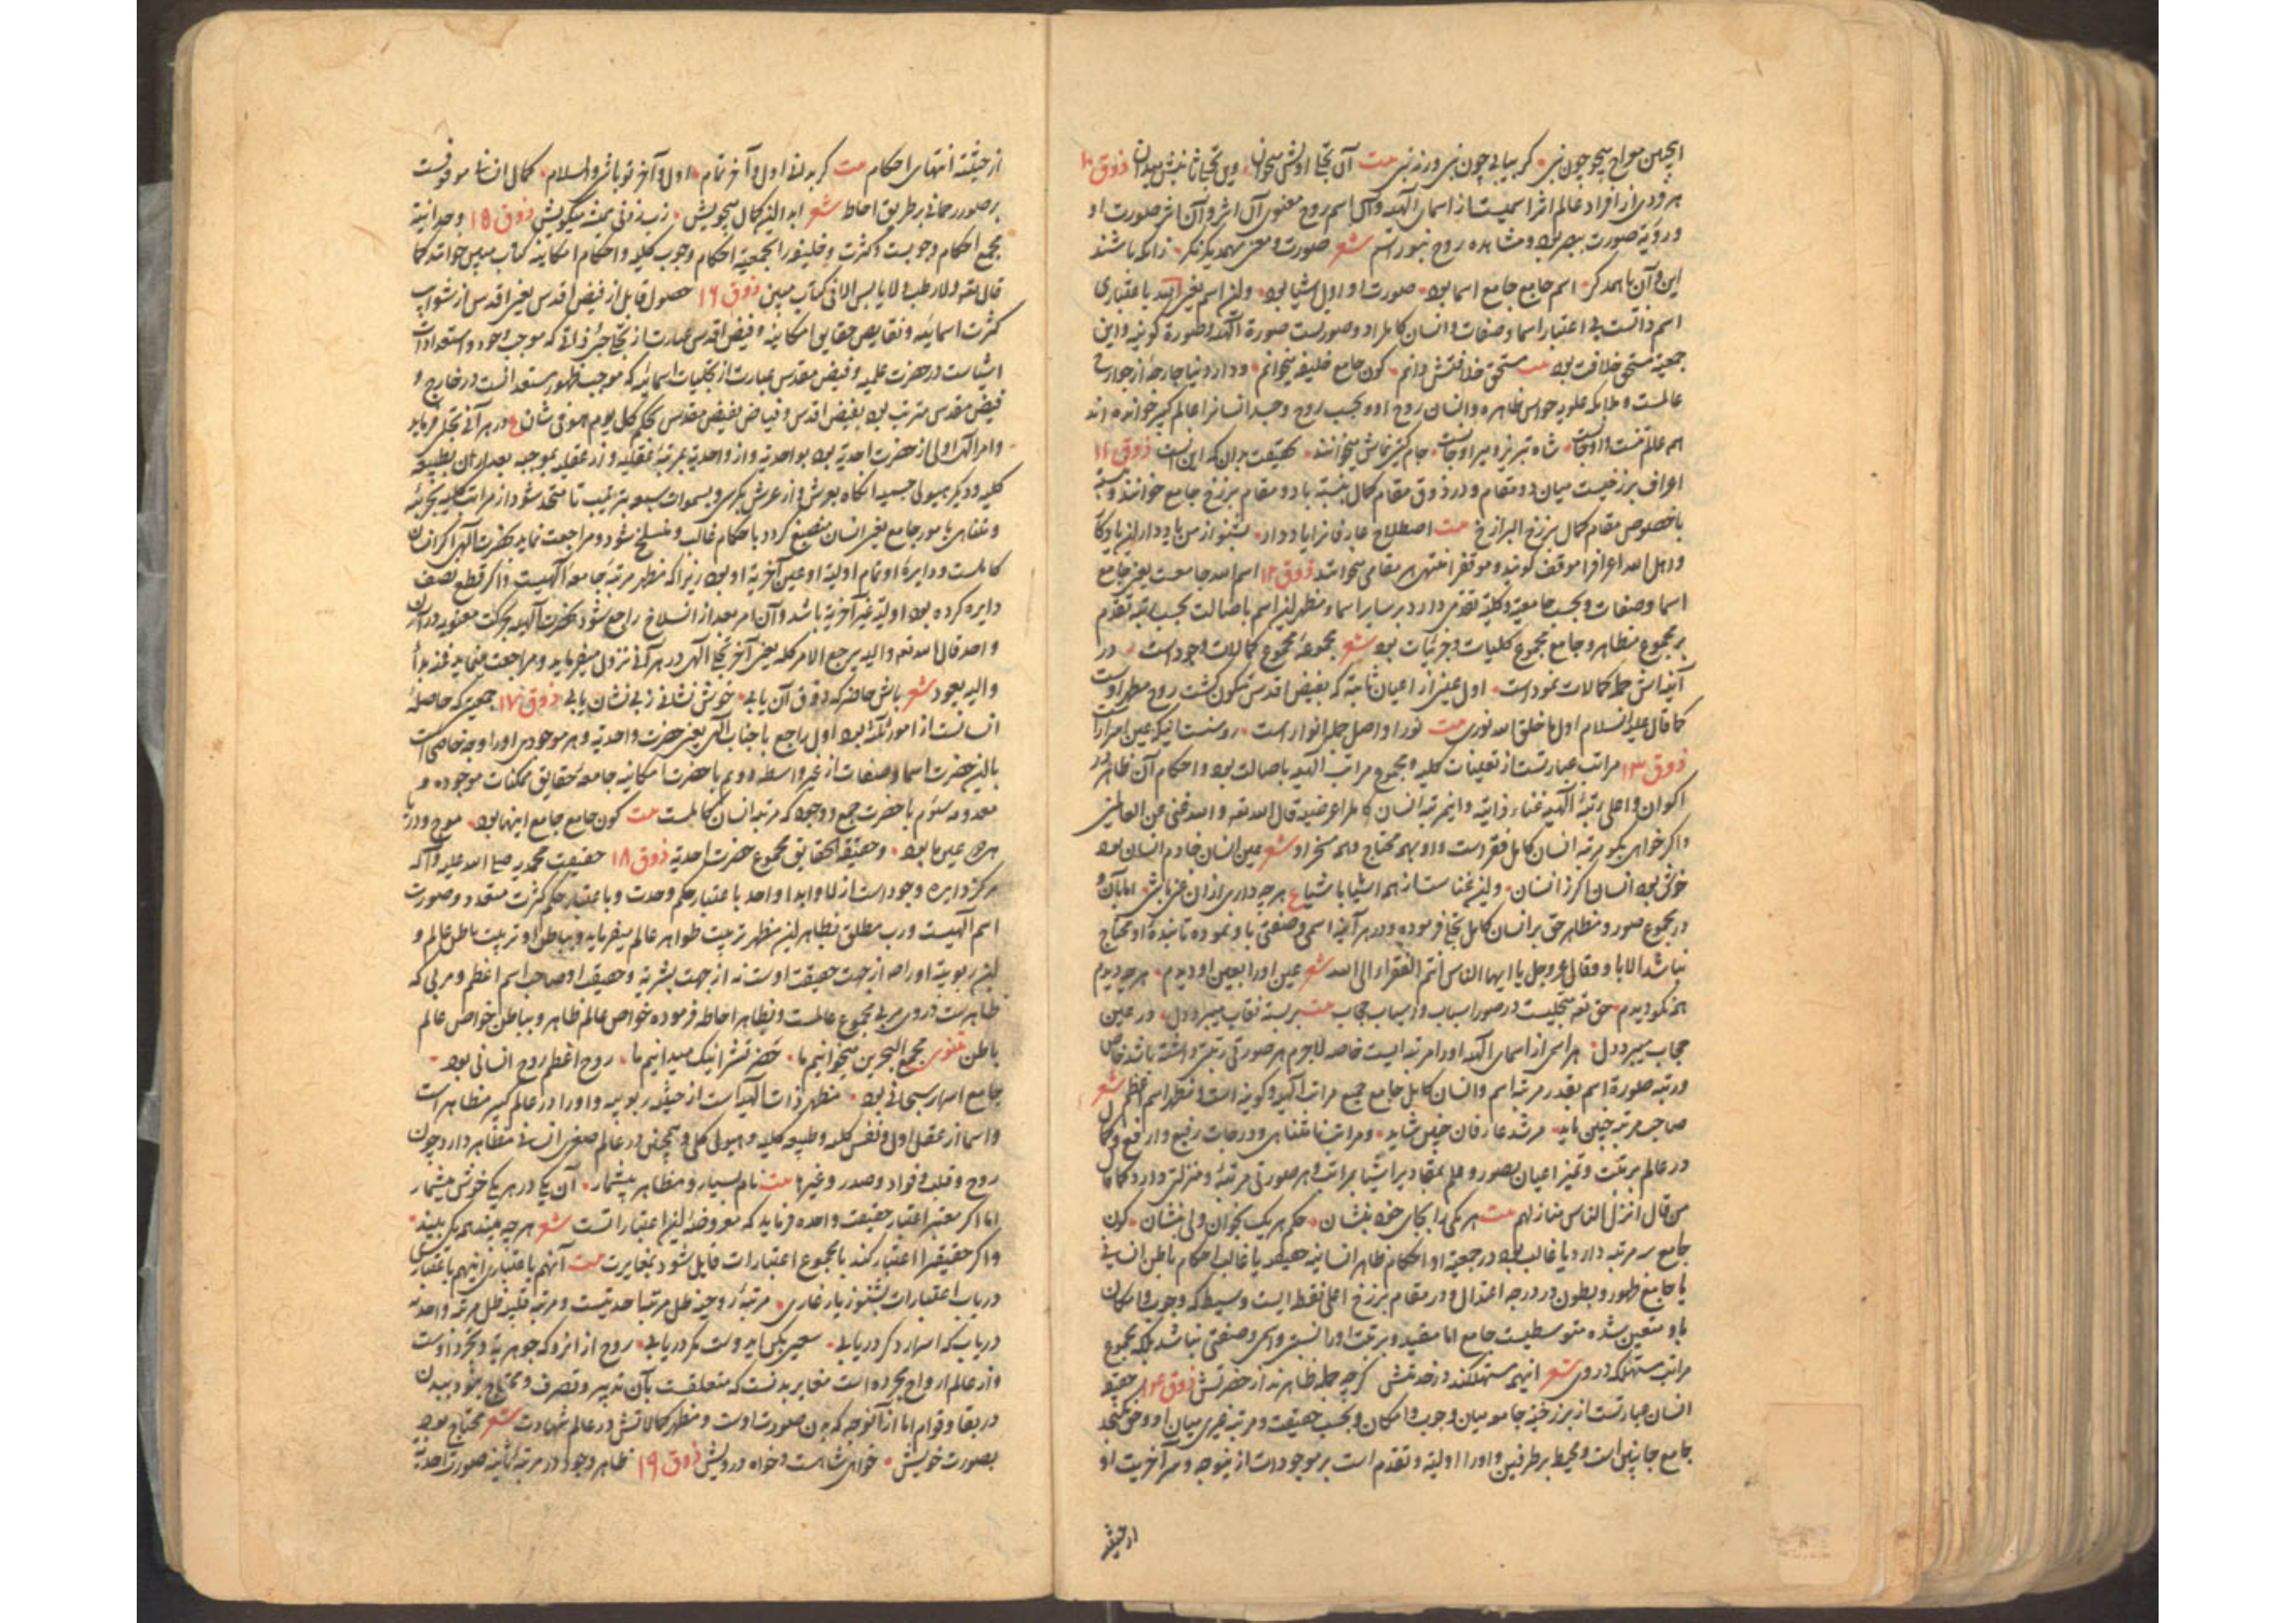 اینچنین مواج بیجو چون نبی کر بیابی چون نبی ورنه نبی بیت آن تجلی اولش میخوان وین تجلی ثانیش میدان ذوق ۱۰
هر فردی از افراد عالم اثر اسمیست از اسمای الهیه و آن اسم روح معنوی آن اثر و آن اثر صورت او
و رؤیة صورت ببصر بود و مشاهده روح بنور اسم شعر صورت و معنی بهمدیگر نگر زانکه باشند
این و آن با همدگر اسم جامع جامع اسما بود صورت او اول اشیا بود و این اسم یعنی الله باعتباری
اسم ذاتست بی اعتبار اسما و صفات و انسان کامل را دو صورتست صورة الهیه و صورة کونیه و این
جمعیة مستحق خلافت بود بیت مستحق خلافتش دانم کون جامع خلیفه میخوانم و دار دنیا جارحه از جوارح
عالمست و ملائکه علویه حواس ظاهره و انسان روح او و بحسب روح و جسد انسانرا عالم کبیر خوانده‌اند
همه عالم تنست و او جانست شاه تبریز و میر اوجانست جام کیتی نمایش میخوانند بحقیقت بدان که این آنست ذوق ۱۱
اعراف برزخیست میان دو مقام و در ذوق مقام کمال بنسبة با دو مقام برزخ جامع خوانند و بنسبة
باخصوص مقام کمال برزخ البرازخ بیت اصطلاح عارفانرا یاد دار بشنو از من یاد دار این یادکار
و اهل الله اعرافرا موقف کویند و موقف منتهی هر مقامی میخوانند ذوق ۱۲ اسم الله جامعست یعنی جامع
اسما و صفات و بحسب جامعیة و کلیة تقدم دارد بر سایر اسما و مظهر این اسم باصالت بحسب رتبه تقدم
بر مجموع مظاهر و جامع مجموع کلیات و جزئیات بود شعر مجموعه مجموع کمالات وجود است در
آینه‌اش جمله کمالات نمود است اول عینی از اعیان ثابته که بفیض اقدس متکون کشت روح مطهر اوست
کما قال علیه السلام اول ما خلق الله نوری بیت نور او اصل جمله انوار است روشنست اینکه عین اسرار است
ذوق ۱۳ مراتب عبارتست از تعینات کلیه و مجموع مراتب الهیه باصالت بود و احکام آن ظاهر در
اکوان و اعلی رتبه الهیه غناء ذاتیه و اینمرتبه انسان کامل را عرضیه قال الله تعه والله غنی عن العالمین
و اکر خواهی بکو مرتبه انسان کامل فقر است و او بهمه محتاج و همه مسخر او شعر عین انسان خادم انسان بود
خوش بود انسان اکر ز انسان و این غناست از همه اشیا باشیا ع هرچه داری از آن غنی باش اما آن و
در مجموع صور و مظاهر حق بر انسان کامل تجلی فرموده و در هر آینه اسمی و صفتی باو نموده تا بنده او محتاج
نباشد الا باو و قال عز و جل یا ایها الناس انتم الفقراء الی الله شعر عین او را بعین او دیدم هرچه دیدم
همه نکو دیدم حق تعه متجلیست در صور اسباب و اسباب حجاب بیت بربسته نقاب میبرد دل در عین
حجاب میبرد دل هر اسمی از اسمای الهیه او را مرتبه ایست خاصه لاجرم هر صورتی رتبتی داشته باشد خاص
و رتبه صورة اسم بقدر مرتبه اسم و انسان کامل جامع جمیع مراتب الهیه و کونیه است و مظهر اسم اعظم شعر
صاحب مرتبه چنین باید مرشد عارفان چنین شاید و مراتب نامتناهی و درجات رفیع و ارفع و کامل و اکمل
در عالم مرتبت و تمیز اعیان بصور و علم بمقادیر اشیا بمراتب و هر صورتی مرتبه و منزلتی دارد کما قال
من قال انزل الناس منازلهم بیت هر یکی را بجای خود بنشان حکم هر یک بخوان ولی بنشان کون
جامع سه مرتبه دارد یا غالب بود در جمعیة او احکام ظاهر انسانیه حقیقیه یا غالب احکام باطن انسانی
یا جامع ظهور و بطون در درجه اعتدال و در مقام برزخ اعلی نقطه ایست وسیط که وجوب و امکان
باو متعین شده متوسطیست جامع اما مقید و مرتبت او را نسبتی و اسمی و صفتی نباشد بلکه مجموع
مراتب مستهلکه در وی شعر اینهمه مستهلکند در خدمتش کرچه جمله ظاهرند از حضرتش ذوق ۱۴ حقیقه
انسان عبارتست از برزخیة جامعه میان وجوب و امکان و بحسب حقیقت و مرتبه غیری میان او و حق نکنجد
جامع جانبین است و محیط بر طرفین و او را اولیة و تقدم است بر موجودات ازینوجه و سر آخریت او
از حیثیة
از حیثیة انتهای احکام بیت کر بدانی اول و آخر تمام اول و آخر تو باشی والسلام کمال انسانی موقوفست
بر صور رحمانی بر طریق احاطه شعر ابدا این کمال میجویش رب زدنی همیشه میکویش ذوق ۱۵ وحدانیة
مجمع احکام وجوبست و کثرت و خلیفه را بجمعیة احکام وجوب کلیه و احکام امکانیه کتاب مبین خوانند کما
قال تعه ولا رطب ولا یابس الا فی کتاب مبین ذوق ۱۶ حصول قابل از فیض اقدس یعنی اقدس از شوایب
کثرت اسمائیه و نقایص حقایق امکانیه و فیض اقدس عبارت از تجلی حبی ذاتی که موجب وجود و استعدادات
اشیاست در حضرت علمیه و فیض مقدس عبارت از تجلیات اسمائیه که موجب ظهور مستعداتست در خارج و
فیض مقدس مترتب بود بفیض اقدس و فیاض بفیض مقدس بحکم کل یوم هو فی شان ع در هر آنی تجلی فرماید
و امر الهی اولی از حضرت احدیة بود بواحدیة و از واحدیة بمرتبه عقلیه و از عقلیه بموجبه بعد از آن بطبیعه
کلیه و دیکر بهیولی جسمیه آنکاه بعرش و از عرش بکرسی و بسموات سبعه بترتیب تا متحد شود از مراتب کلیه بجزئیه
و متناهی بامور جامع یعنی انسان منصبغ کردد باحکام غالب و منسلخ شود و مراجعت نماید بحضرت الهی اکر انسان
کاملست و دایرهٔ او تمام اولیة او عین آخریة او بود زیرا که مظهر مرتبه جامعه الهیست و اکر قطع نصف
دایره کرده بود اولیة غیر آخریة باشد و آن امر بعد از انسلاخ راجع شود بحضرت الهیه بحرکت معنویه در آن
واحد قال الله تعه والیه یرجع الامر کله یعنی آخر تجلی الهی در هر آنی نزول میفرماید و مراجعت مینماید فمنه بدأ
والیه یعود شعر باش حاضر که ذوق آن یابی خوش نشانی ز بی‌نشان یابی ذوق ۱۷ جمعیتی که حاصله
انسانست از امور ثلثه بود اول راجع باجناب الهی یعنی حضرت واحدیة و هر موجودی را ازو وجه خاصی است
باین حضرت اسما و صفات از غیر واسطه دویم با حضرت امکانیه جامعه حقایق ممکنات موجوده و
معدومه سیوم با حضرت جمع وجود که مرتبه انسان کاملست بیت کون جامع جامع اینها بود موج و دریا
هر دو عین ما بود و حقیقة الحقایق مجموع حضرت احدیة ذوق ۱۸ حقیقت محمدیه صلی الله علیه و آله
مرکز دایره وجود است ازلا و ابدا واحد باعتبار حکم وحدت و باعتبار حکم کثرت متعدد و صورت
اسم الهیست و رب مطلق بظاهر این مظهر تربیت ظواهر عالم میفرماید و بباطن او تربیت باطن عالم و
این ربوبیة او را از جهت حقیقت اوست نه از جهت بشریة و حقیقة او صاحب اسم اعظم و مربی که
ظاهرست در وی مربی مجموع عالمست و بظاهر احاطه فرموده خواص عالم ظاهر و بباطن خواص عالم
باطن مثنوی مجمع البحرین میخوانیم ما خضر تشرا نیک میدانیم ما روح اعظم روح انسانی بود
جامع اسرار سبحانی بود مظهر ذات الهیه است از حیثیة ربوبیه و او را در عالم کبیر مظاهر است
و اسما از عقل اول و نفس کلیه و طبیعه کلیه و هیولی کلی و همچنین در عالم صغیر انسانی مظاهر دارد چون
روح و قلب و فؤاد و صدر و غیرها بیت نام بسیار و مظاهر بیشمار آن یکی در هر یکی خوش میشمار
اما اکر معتبر اعتبار حقیقت واحده فرماید که معروضهٔ این اعتباراتست شعر هرچه بیند همه یکی بیند
و اکر حقیقة را اعتبار کند با مجموع اعتبارات قایل شود بمغایرت بیت آنهم باعتباری اینهم باعتباری
دریاب اعتبارات بشنو ز یار غاری مرتبهٔ روحیه ظل مرتبه احدیتست و مرتبه قلبیه ظل مرتبه واحدیه
دریاب که اسرار دکر دریابی سعیی بکن ای دوست مکر دریابی روح از آنرو که جوهریة و تجرد اوست
و از عالم ارواح مجرده است مغایر بدنست که متعلقست بآن تدبیر و تصرف و محتاج نبود ببدن
در بقا و قوام اما از آنوجه که بدن صورت اوست و مظهر کمالاتش در عالم شهادت شعر محتاج بود
بصورت خویش خواه شاهست و خواه درویش ذوق ۱۹ ظاهر وجود در مرتبه ثانیه صورت احدیه